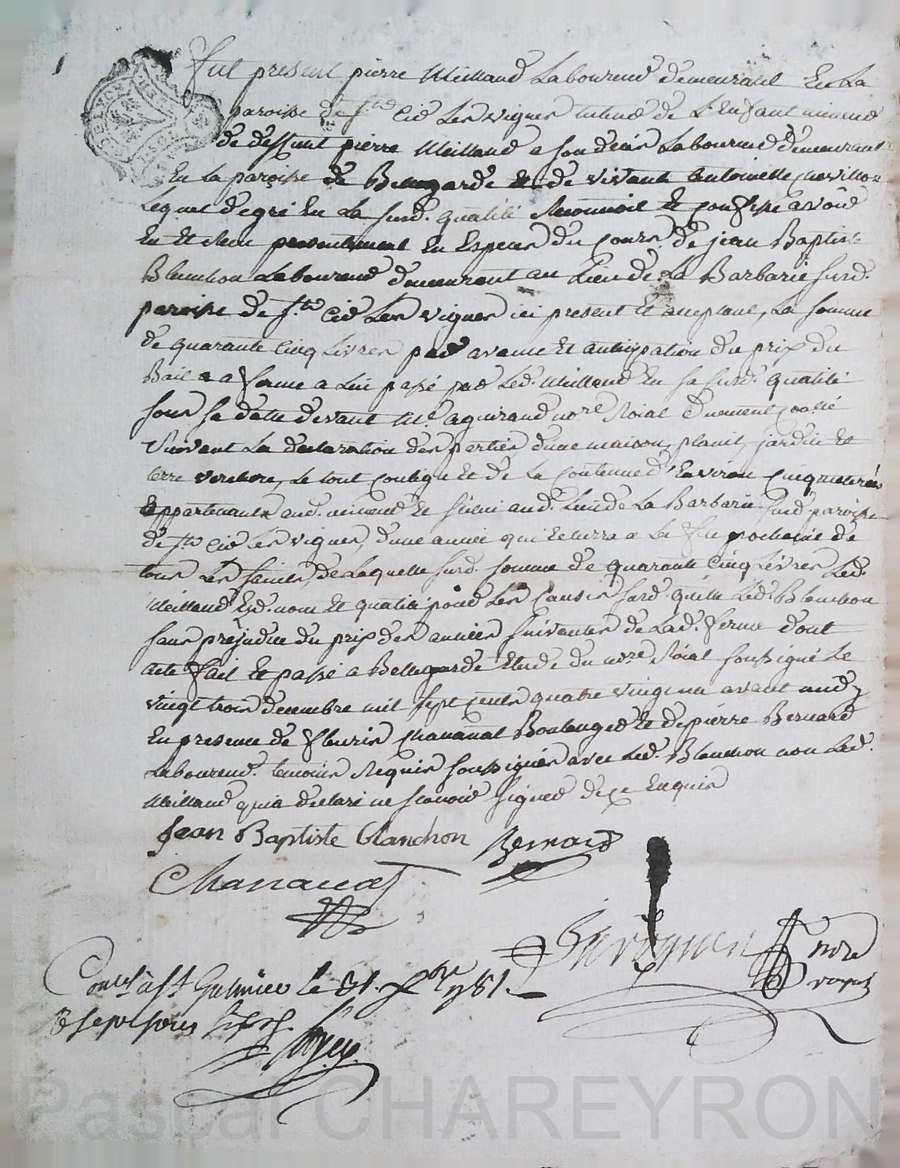 fut present pierre Meilland Laboureur demeurant En La
paroisse de St Cir Les vignes tuteur de L'Enfant mineur
de deffunt pierre Meilland a son deces Laboureur demeurant
En la paroisse de Bellegarde et de vivant antoinette
Lequel de gré En La susd. qualité Reconnoit et confesse avoir
Eu et Receu presentement En Especes du cours de jean Baptiste
Blanchon Laboureur demeurant au Lieu de La Barbarie susd.
paroisse de St Cir Les vignes ici present et aceptant, La somme
de quarante Cinq Livres par avance et anticipation du prix du
Bail a ferme a Lui passé par Led. Meilland En sa susd. qualité
sous sa datte devant Me aguiraud nore Roial duement
Suivant La declaration des parties d'une maison, jardin et
terre verchere, Le tout contigue et de La contenue d'Environ cinq
appartenants aud. mineur et situés aud. Lieu de La Barbarie susd. paroisse
de St Cir Les vignes, d'une année qui Echerra a La fete prochaine de
tous Les saints, de Laquelle susd. somme de quarante Cinq Livres Led.
Meilland Esd. nom et qualité pour Les Causes susd. quitte Led. Blanchon
sans prejudice du prix des années suivantes de Lad. ferme dont
acte fait et passé a Bellegarde Etude du nore Roial soussigné Le
vingt trois decembre mil sept cent quatre vingt un avant midy
En presence de fleuris Chanavat Boulanger et de pierre Bernard
Laboureur temoins Requis soussignés avec Led. Blanchon non Led.
Meilland qui a declaré ne scavoir signer de ce Enquis
Jean Baptiste blanchon Bernard
Chanavat
nore
royal
Conlé à St Galmier le 31 Xbre 1781.
R sept sous
Pascal CHAREYRON